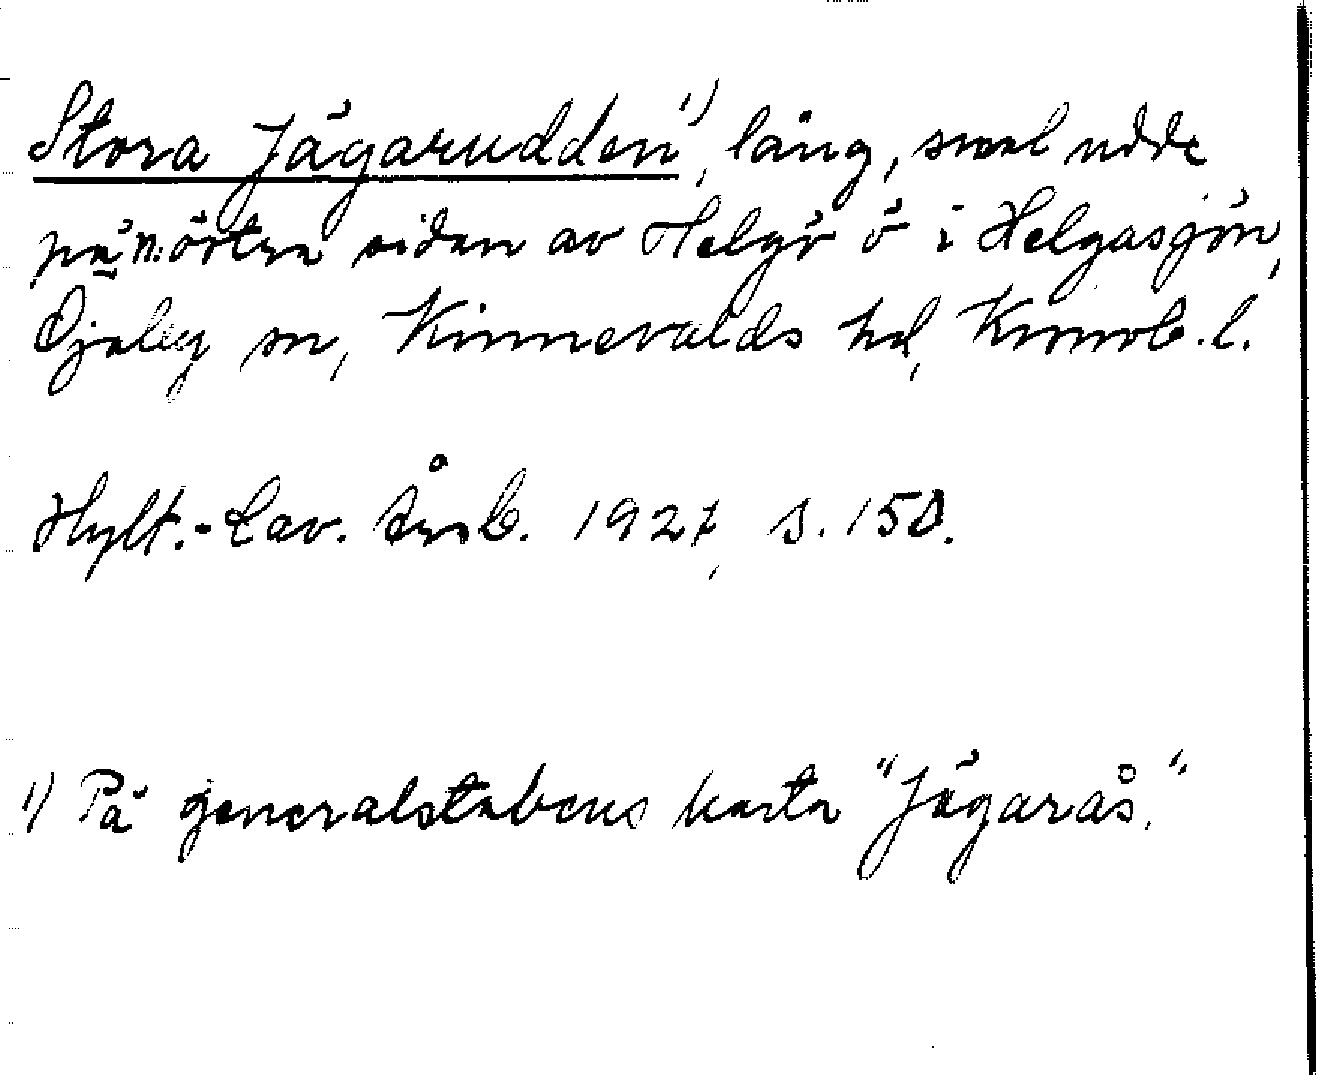 Stora Jägarudden¹⁾, lång, smal udde
på n. östra sidan av Helgö ö i Helgasjön,
Öjaby sn, Kinnevalds hd, Kronob. l.
Hylt.-Cav. Årsb. 1927, s. 150.
1) På generalstabens karta "Jägarås."